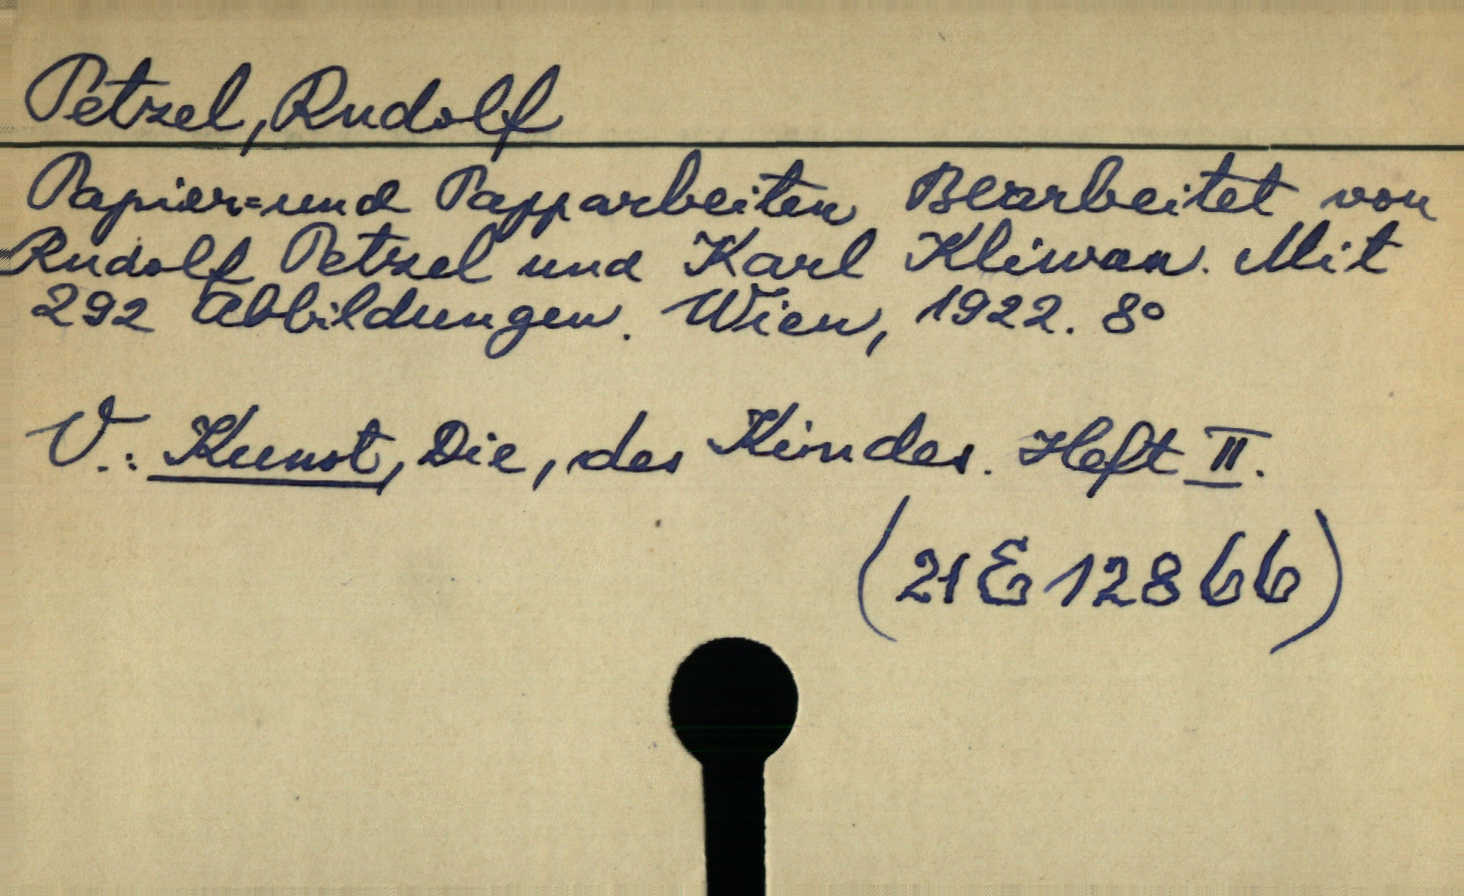 Petzel, Rudolf
Papier=und Papparbeiten Bearbeitet von
Rudolf Petzel und Karl Kliwan. Mit
292 Abbildungen. Wien, 1922. 8°
V.: Kunst, Die, des Kindes. Heft II.
(21 E 128 66)